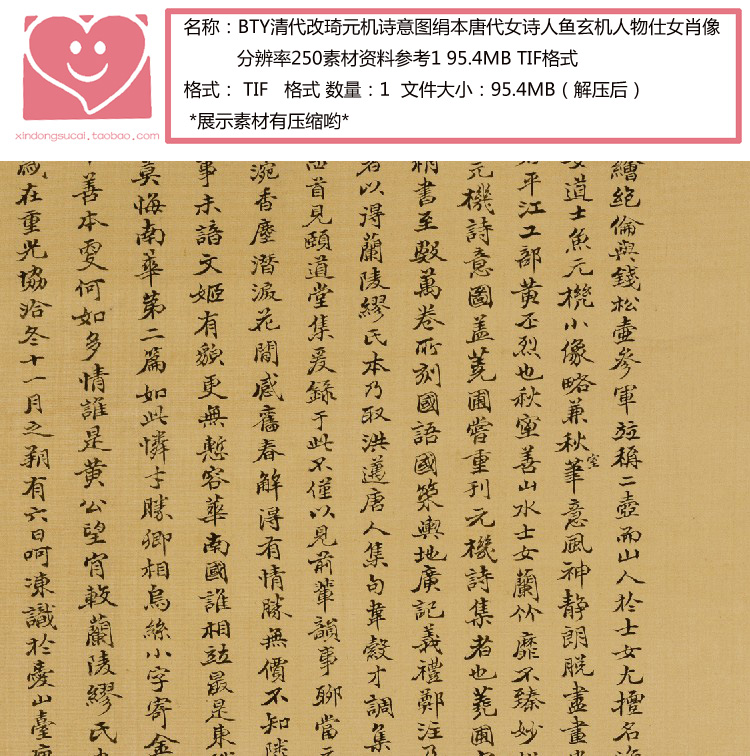 xindongsucai.taobao.com
名称：BTY清代改琦元机诗意图绢本唐代女诗人鱼玄机人物仕女肖像
分辨率250素材资料参考1 95.4MB TIF格式
格式： TIF 格式 数量：1 文件大小：95.4MB（解压后）
*展示素材有压缩哟*
繪絶倫與錢松壺參軍竝稱二壺而山人於士女尤擅名
道士魚元機小像略兼秋室筆意風神静朗脱盡畫
平江工部黄丕烈也秋室善山水士女蘭竹靡不臻妙
元機詩意圖蓋蕘圃嘗重刊元機詩集者也蕘圃
精書至數萬卷所刻國語國策輿地廣記義禮鄭注乃
者以得蘭陵繆氏本乃取洪邁唐人集句韋縠才調集
首見頤道堂集爰録于此不僅以見前輩韻事聊當
涴香塵潛淚花間感舊春解得有情勝無價不知
事未語文姬有貌更無慙容華南國誰相竝最是東
莫悔南華第二篇如此憐才勝卿相烏絲小字寄金
善本更何如多情誰是黄公望宵敕蘭陵繆氏
歲在重光協洽冬十一月之朔有六日呵凍識於憂山臺